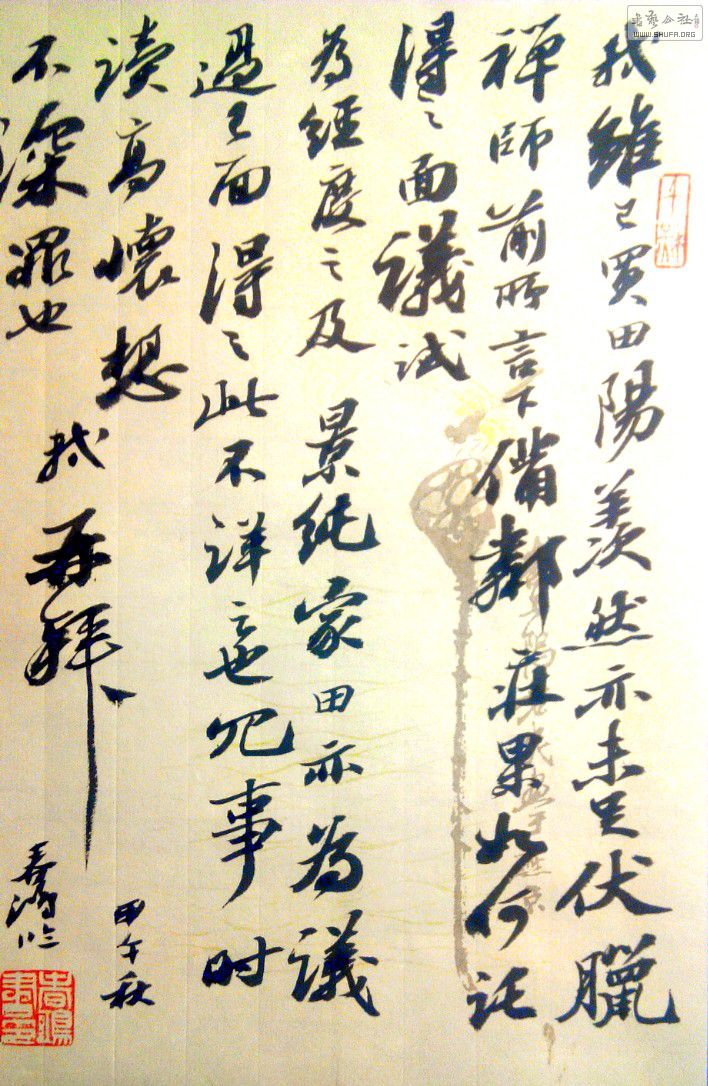 軾雖已買田陽羨然亦未足伏臘
禪師前所言下備鄰莊果如何託
得之面議試
為經度之及景純家田亦為議
過已面得之此不詳云也冗事时
讀高懷想
不深罪也
軾再拜
甲午秋
書藝公社
WWW.SHUFA.ORG